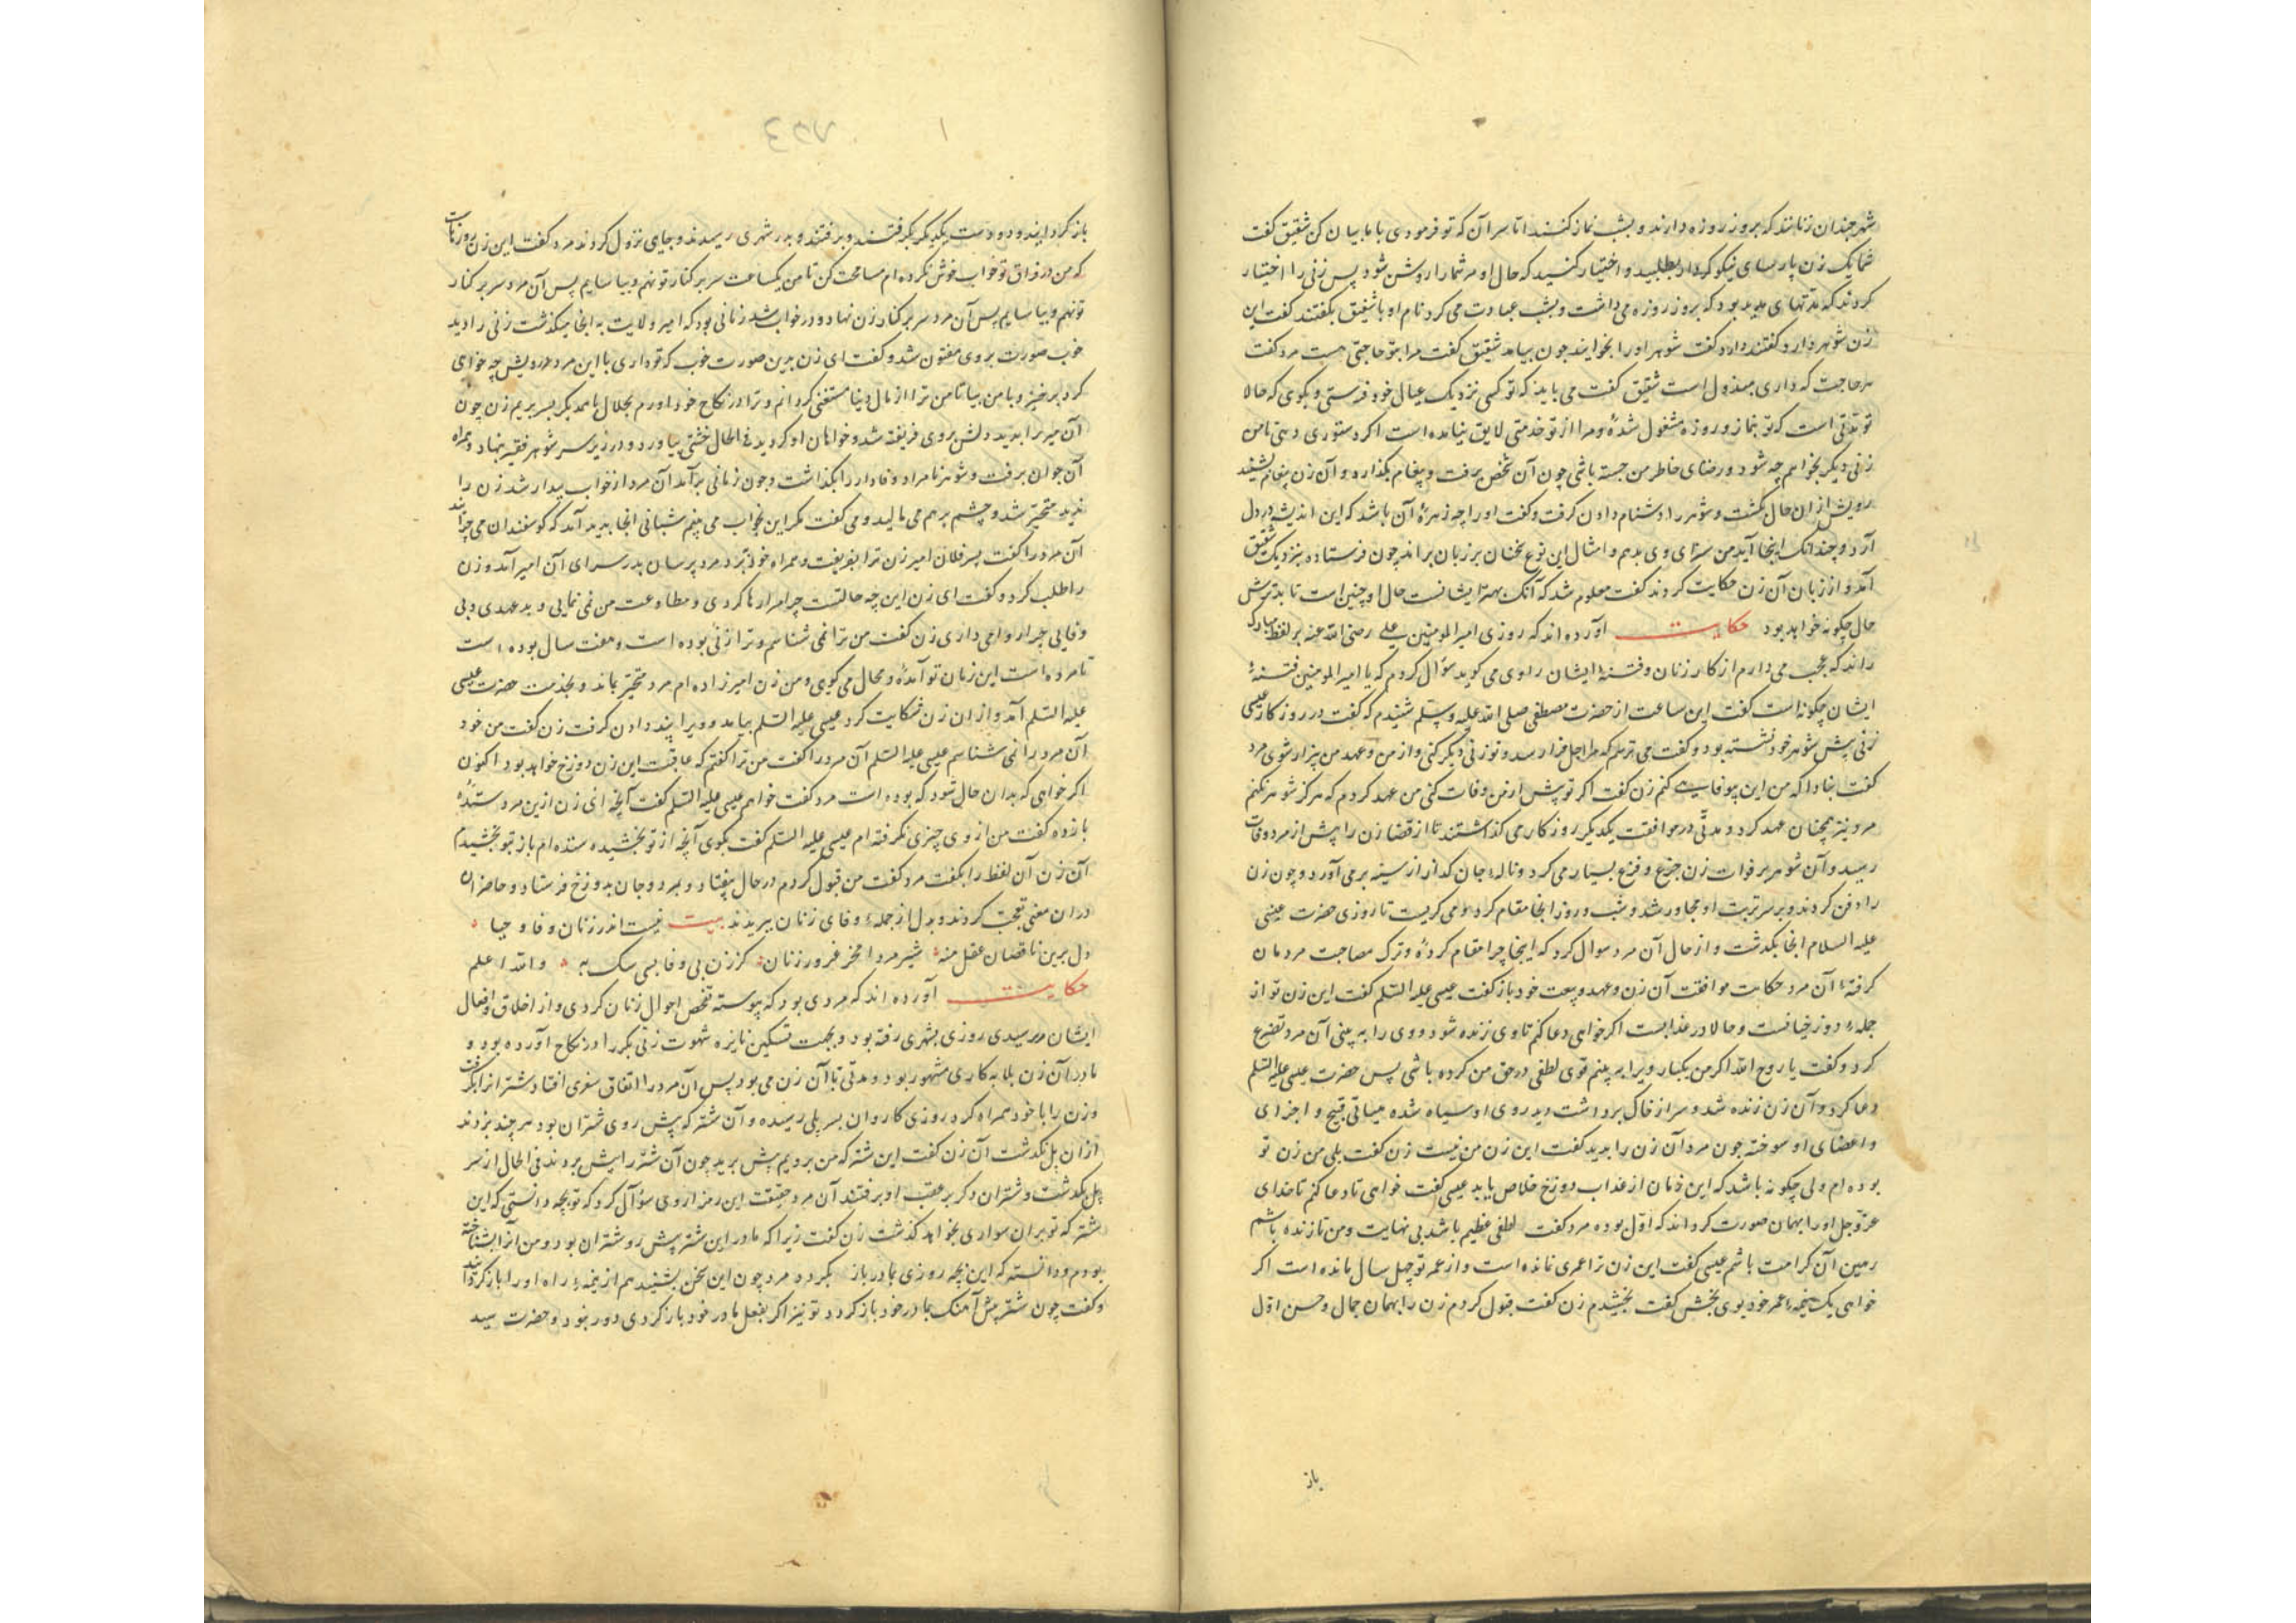 شهر چندان زنانند که بروز روزه دارند و بشب نماز کنند اما سر آن که تو فرمودی با ما بیان کن شقیق گفت
شما یک زن پارسای نیکو کردار بطلبید و اختیار کنید که حال او مر شما را روشن شود پس زنی را اختیار
کردند که مدتهای مدید بود که بروز روزه می داشت و بشب عبادت می کرد نام او با شقیق بگفتند گفت این
زن شوهر دارد گفتند دارد گفت شوهر او را بخوانید چون بیامد شقیق گفت مرا بتو حاجتی هست مرد گفت
هر حاجت که داری مبذول است شقیق گفت می باید که تو کسی نزدیک عیال خود فرستی و بگوی که حالا
تو مدتی است که تو بنماز و روزه مشغول شدهٔ و مرا از تو خدمتی لایق نیامده است اگر دستوری دهی تا من
زنی دیگر بخواهم چه شود و رضای خاطر من جسته باشی چون آن شخص برفت و پیغام بگذارد و آن زن پیغام بشنید
رویش از آن حال بگشت و شوهر را دشنام دادن گرفت و گفت او را چه زهرهٔ آن باشد که این اندیشه در دل
آرد و چندانک اینجا آید من سزای وی بدهم و امثال این نوع سخنان بر زبان براند چون فرستاده بنزدیک شقیق
آمد و از زبان آن زن حکایت کردند گفت معلوم شد که آنک بهتر ایشانست حال او چنین است تا بدترش
حال چگونه خواهد بود حکایت آورده اند که روزی امیر المومنین علی رضی الله عنه بر لفظ مبارک
راند که عجب می دارم از کار زنان و فتنهٔ ایشان راوی می گوید سؤال کردم که یا امیر المومنین فتنهٔ
ایشان چگونه است گفت این ساعت از حضرت مصطفی صلی الله علیه وسلم شنیدم که گفت در روزگار عیسی
زنی پیش شوهر خود نشسته بود و گفت می ترسم که مرا اجل فرا رسد و تو زنی دیگر کنی و از من و عهد من بیزار شوی مرد
گفت مبادا که من این بیوفایی کنم زن گفت اگر تو پیش از من وفات کنی من عهد کردم که هرگز شوهر نکنم
مرد نیز همچنان عهد کرد و مدتی در موافقت یکدیگر روزگار می گذاشتند تا از قضا زن را پیش از مرد وفات
رسید و آن شوهر بر فوات زن جزع و فزع بسیار می کرد و نالهٔ جان گداز از سینه بر می آورد و چون زن
را دفن کردند و بر سر تربت او مجاور شد و شب و روز آنجا مقام کرد و می گریست تا روزی حضرت عیسی
علیه السلام آنجا بگذشت و از حال آن مرد سوال کرد که اینجا چرا مقام کردهٔ و ترک مصاحبت مردمان
گرفتهٔ آن مرد حکایت موافقت آن زن و عهد و بیعت خود باز گفت عیسی علیه السلم گفت این زن تو از
جملهٔ دوزخیانست و حالا در عذابست اگر خواهی دعا کنم تا وی زنده شود و وی را به بینی آن مرد تضرع
کرد و گفت یا روح الله اگر من یکبار ویرا به بینم قوی لطفی در حق من کرده باشی پس حضرت عیسی علیه السلم
دعا کرد و آن زن زنده شد و سر از خاک برداشت دید روی او سیاه شده هیاتی قبیح و اجزای
و اعضای او سوخته چون مرد آن زن را بدید گفت این زن من نیست زن گفت بلی من زن تو
بوده ام ولی چگونه باشد که این زمان از عذاب دوزخ خلاص یابد عیسی گفت خواهی تا دعا کنم تا خدای
عز و جل او را بهمان صورت گرداند که اول بوده مرد گفت لطفی عظیم باشد بی نهایت و من تا زنده باشم
رهین آن کرامت باشم عیسی گفت این زن ترا عمری نمانده است و از عمر تو چهل سال مانده است اگر
خواهی یک نیمهٔ عمر خود بوی بخش گفت بخشیدم زن گفت قبول کردم زن را بهمان جمال و حسن اول
باز
باز گردانیدند و دست یکدیگر بگرفتند و برفتند و بدر شهری رسیدند و جای نزول کردند مرد گفت این زن روزهاست
که من در فراق تو خواب خوش نکرده ام مسامحت کن تا من یکساعت سر بر کنار تو نهم و بیاسایم پس آن مرد سر بر کنار
تو نهم و بیاسایم پس آن مرد سر بر کنار زن نهاد و در خواب شد زمانی بود که امیر ولایت به انجا میگذشت زنی را دید
خوب صورت بر وی مفتون شد و گفت ای زن بدین صورت خوب که تو داری با این مرد درویش چه خواهی
کرد برخیز و با من بیا تا من ترا از مال دنیا مستغنی گردانم و ترا در نکاح خود آورم بحلال با همدیگر بسر بریم زن چون
آن میر را بدید دلش بروی فریفته شد و خواهان او گردید فی الحال خشتی بیاورد و در زیر سر شوهر فقیر نهاد و همراه
آن جوان برفت و شوهر نامراد وفادار را بگذاشت و چون زمانی برآمد آن مرد از خواب بیدار شد زن را
ندید متحیر شد و چشم بر هم می مالید و می گفت مگر این بخواب می بینم شبانی آنجا بدید آمد که گوسفندان می چرانید
آن مرد را گفت پسر فلان امیر زن ترا بفریفت و همراه خود ببرد مرد پرسان بدر سرای آن امیر آمد و زن
را طلب کرد و گفت ای زن این چه حالتست چرا مرا رها کردی و مطاوعت من نمی نمایی و بد عهدی و بی
وفایی چرا روا می داری زن گفت من ترا نمی شناسم و ترا زنی بوده است و هفت سال بوده است
تا مرده است این زمان تو آمدهٔ و محال می گویی و من زن امیر زاده ام مرد متحیر بماند و بخدمت حضرت عیسی
علیه السلم آمد و از آن زن شکایت کرد عیسی علیه السلم بیامد و ویرا پند دادن گرفت زن گفت من خود
آن مرد را نمی شناسم عیسی علیه السلم آن مرد را گفت من ترا گفتم که عاقبت این زن دوزخ خواهد بود اکنون
اگر خواهی که بدان حال شود که بوده است مرد گفت خواهم عیسی علیه السلم گفت آنچه ای زن ازین مرد ستدهٔ
باز ده گفت من از وی چیزی نگرفته ام عیسی علیه السلم گفت بگوی آنچه از تو بخشیده ستده ام باز بتو بخشیدم
آن زن آن لفظ را بگفت مرد گفت من قبول کردم در حال بیفتاد و بمرد و جان بدوزخ فرستاد و حاضران
در ان معنی تعجب کردند و بدل از جملهٔ وفای زنان ببریدند بیت نیست اندر زنان وفا و حیا
دل برین ناقصان عقل منه شیر مردا مخر غرور زنان کز زن بی وفا بسی سگ به والله اعلم
حکایت آورده اند که مردی بود که پیوسته تفحص احوال زنان کردی و از اخلاق و افعال
ایشان پرسیدی روزی بشهری رفته بود و بجهت تسکین نایره شهوت زنی بکر را در نکاح آورده بود و
مادر آن زن بلابه کاری مشهور بود و مدتی با آن زن می بود پس آن مرد را اتفاق سفری افتاد و شتران را بکرا گرفت
وزن را با خود همراه کرد روزی کاروان بسر پلی رسیده و آن شتر که پیش روی شتران بود هر چند بزدند
از ان پل نگذشت آن زن گفت این شتر که من برویم پیش برید چون آن شتر را پیش بردند فی الحال از سر
پل بگذشت و شتران دگر بر عقب او برفتند آن مرد حقیقت این رمز از وی سؤال کرد که تو بچه دانستی که این
شتر که تو بران سواری بخواهد گذشت زن گفت زیرا که مادر این شتر پیش رو شتران بود و من آنرا بشناخته
بودم و دانسته که این بچه روزی بمادر باز گردد مرد چون این سخن بشنید هم از نیمهٔ راه او را باز گردانید
و گفت چون شتر پیش آهنگ بمادر خود باز گردد تو نیز اگر بفعل مادر خود باز گردی دور نبود و حضرت سید